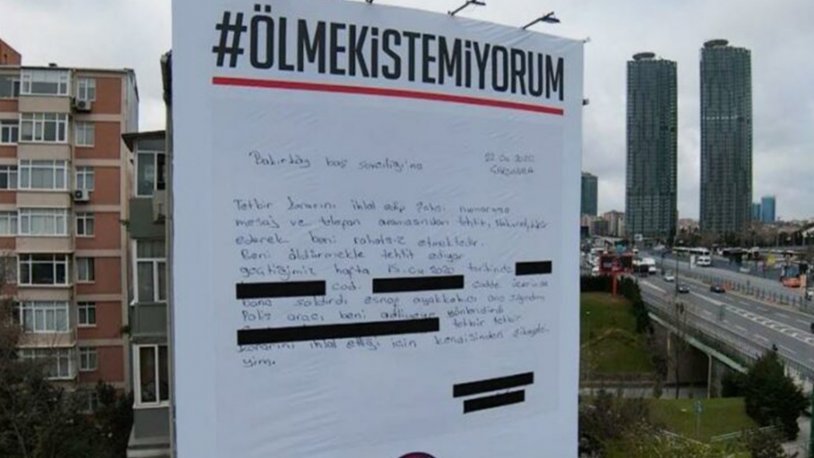 #ÖLMEKİSTEMİYORUM
Bakırköy baş savcılığı'na
22 04 2020
ÇARŞAMBA
Tedbir kararını ihlal edip şahsi numarama
mesaj ve telefon aramasından tehtit,
ederek beni rahatsız etmektedir.
Beni öldürmekle tehtit ediyor
geçtiğimiz hafta 15.04 2020 tarihinde
cad. cadde üzerinde
bana saldırdı esnaf ayakkabıcı ona sığındım
Polis aracı beni adliyeye yönlendirdi.
tedbir
kararını ihlal ettiği için kendisinden şikayetçi
yim.